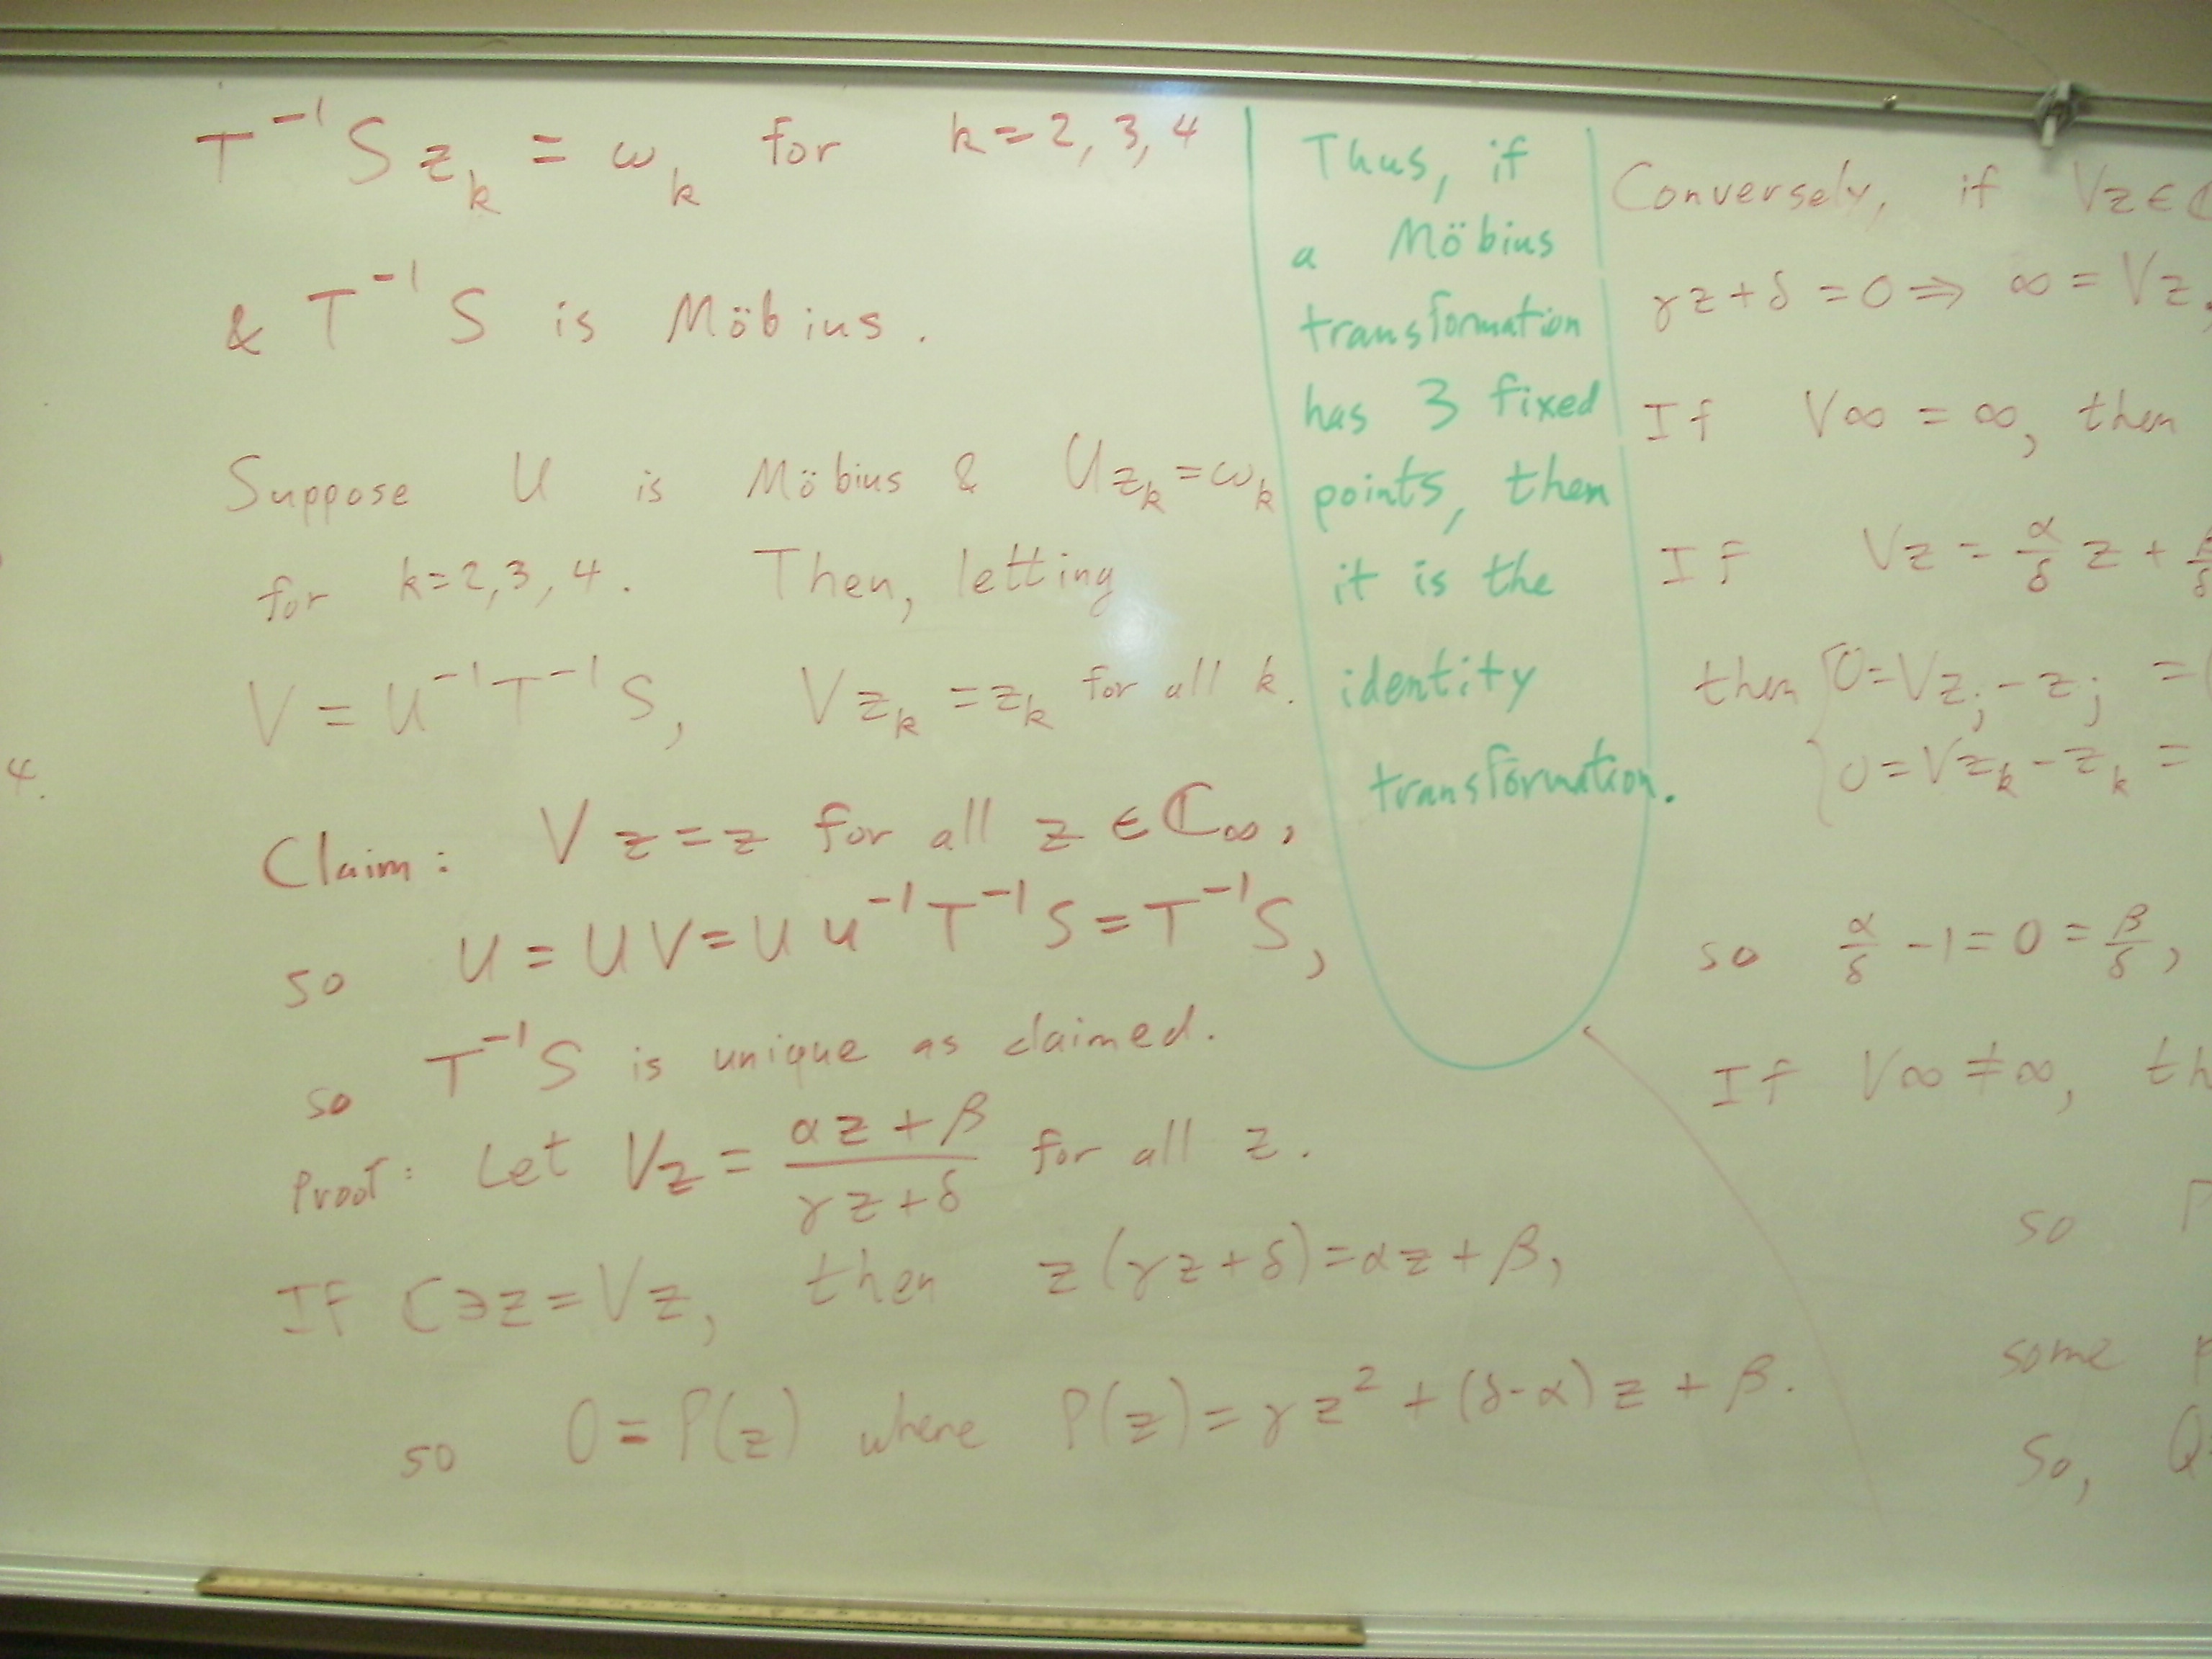 T⁻¹S z_k = ω_k for k=2,3,4
& T⁻¹S is Möbius.
Suppose U is Möbius & Uz_k=ω_k
for k=2,3,4. Then, letting
V = U⁻¹T⁻¹S, Vz_k = z_k for all k.
Claim: Vz=z for all z∈ℂ_∞,
so U = UV = UU⁻¹T⁻¹S = T⁻¹S,
so T⁻¹S is unique as claimed.
Proof: Let Vz = (αz+β)/(γz+δ) for all z.
If ℂ∋z=Vz, then z(γz+δ)=αz+β,
so 0=P(z) where P(z)=γz²+(δ-α)z+β.
Thus, if
a Möbius
transformation
has 3 fixed
points, then
it is the
identity
transformation.
Conversely, if Vz∈ℂ
γz+δ=0⇒ ∞=Vz,
If V∞=∞, then
If Vz = α/δ z +
then {0=Vz_j-z_j =
0=Vz_k-z_k =
so α/δ -1=0=β/δ,
If V∞≠∞, th
so
some
So, Q
4.